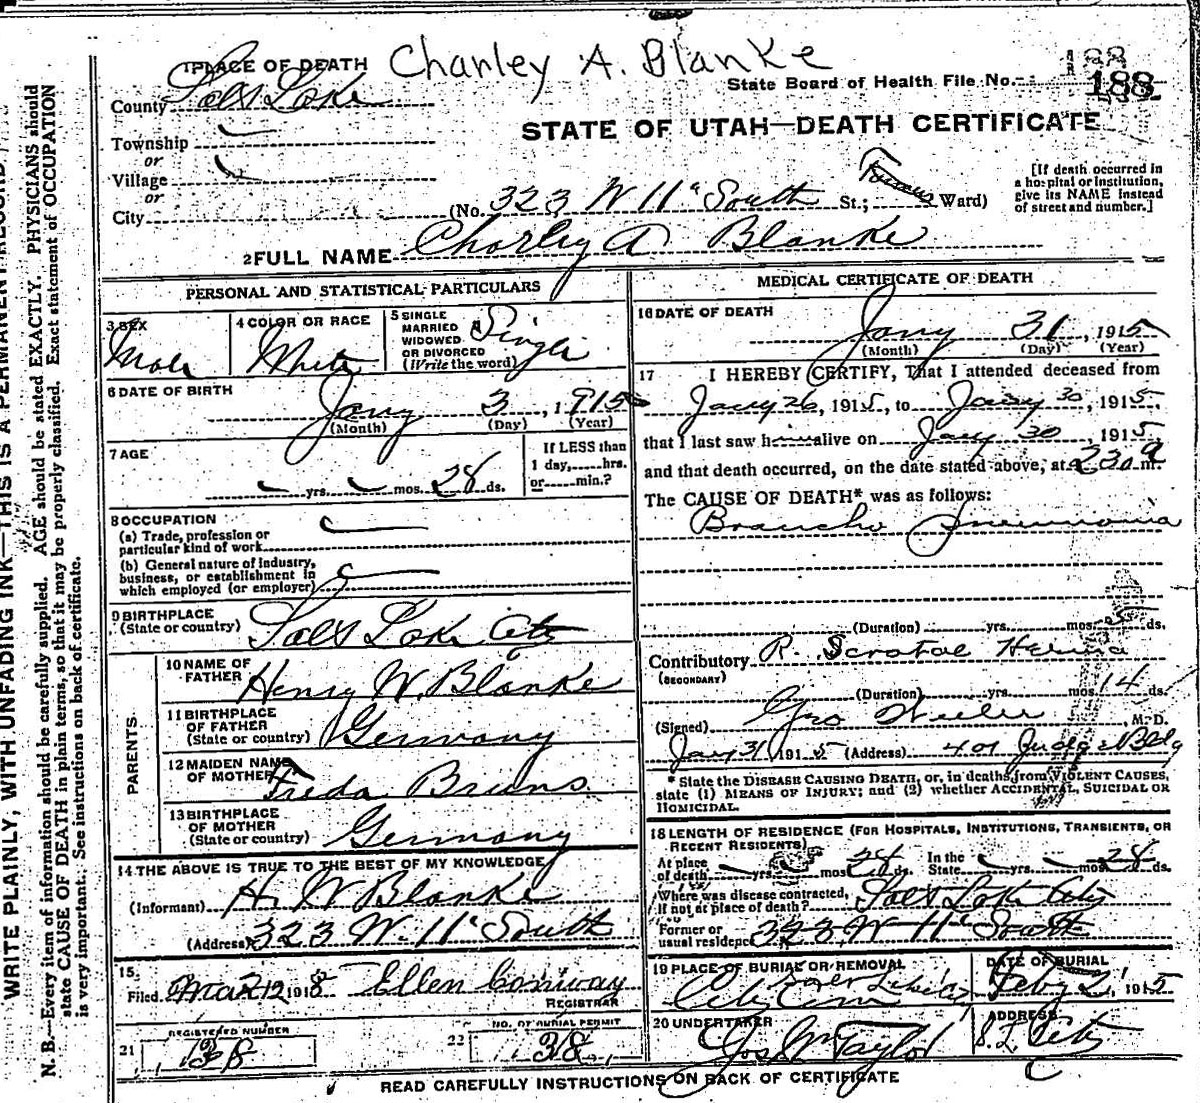 WRITE PLAINLY, WITH UNFADING INK—THIS IS A PERMANENT RECORD
N. B.—Every item of information should be carefully supplied. AGE should be stated EXACTLY. PHYSICIANS should
state CAUSE OF DEATH in plain terms, so that it may be properly classified. Exact statement of OCCUPATION
is very important. See instructions on back of certificate.
1 PLACE OF DEATH Charley A. Blanke
State Board of Health File No. 188
County Salt Lake
STATE OF UTAH—DEATH CERTIFICATE
Township
or
Village
or
City (No. 323 W 11" South St.; Ward)
[If death occurred in
a hospital or institution,
give its NAME instead
of street and number.]
2 FULL NAME Charley A Blanke
PERSONAL AND STATISTICAL PARTICULARS
3 SEX Male
4 COLOR OR RACE White
5 SINGLE
MARRIED
WIDOWED
OR DIVORCED
(Write the word) Single
6 DATE OF BIRTH
Jany 3, 1915
(Month) (Day) (Year)
7 AGE
yrs. mos. 28 ds.
If LESS than
1 day, hrs.
or min.?
8 OCCUPATION
(a) Trade, profession or
particular kind of work
(b) General nature of industry,
business, or establishment in
which employed (or employer)
9 BIRTHPLACE
(State or country) Salt Lake City
PARENTS
10 NAME OF
FATHER Henry W. Blanke
11 BIRTHPLACE
OF FATHER
(State or country) Germany
12 MAIDEN NAME
OF MOTHER Freda Bruns
13 BIRTHPLACE
OF MOTHER
(State or country) Germany
14 THE ABOVE IS TRUE TO THE BEST OF MY KNOWLEDGE
(Informant) H. W Blanke
(Address) 323 W. 11" South
15
Filed Mar 12 1918 Ellen Conway
REGISTRAR
REGISTERED NUMBER
21 138
NO. OF BURIAL PERMIT
22 38
MEDICAL CERTIFICATE OF DEATH
16 DATE OF DEATH
Jany 31, 1915
(Month) (Day) (Year)
17 I HEREBY CERTIFY, That I attended deceased from
Jany 26, 1915, to Jany 30, 1915,
that I last saw h alive on Jany 30, 1915,
and that death occurred, on the date stated above, at 230 a m.
The CAUSE OF DEATH* was as follows:
Broncho Pneumonia
(Duration) yrs. mos. 5 ds.
Contributory R. Scrotal Hernia
(SECONDARY)
(Duration) yrs. mos. 14 ds.
(Signed) M. D.
Jany 31 1915 (Address) 401 Judge Bldg
* State the DISEASE CAUSING DEATH, or, in deaths from VIOLENT CAUSES,
state (1) MEANS OF INJURY; and (2) whether ACCIDENTAL, SUICIDAL OR
HOMICIDAL.
18 LENGTH OF RESIDENCE (FOR HOSPITALS, INSTITUTIONS, TRANSIENTS, OR
RECENT RESIDENTS)
At place
of death yrs. mos. 28 ds. In the
State yrs. mos. 28 ds.
Where was disease contracted,
if not at place of death? Salt Lake City
Former or
usual residence 323 W 11" South
19 PLACE OF BURIAL OR REMOVAL
City Cem
DATE OF BURIAL
Feby 2, 1915
20 UNDERTAKER
Jos Wm Taylor
ADDRESS
S. L. City
READ CAREFULLY INSTRUCTIONS ON BACK OF CERTIFICATE